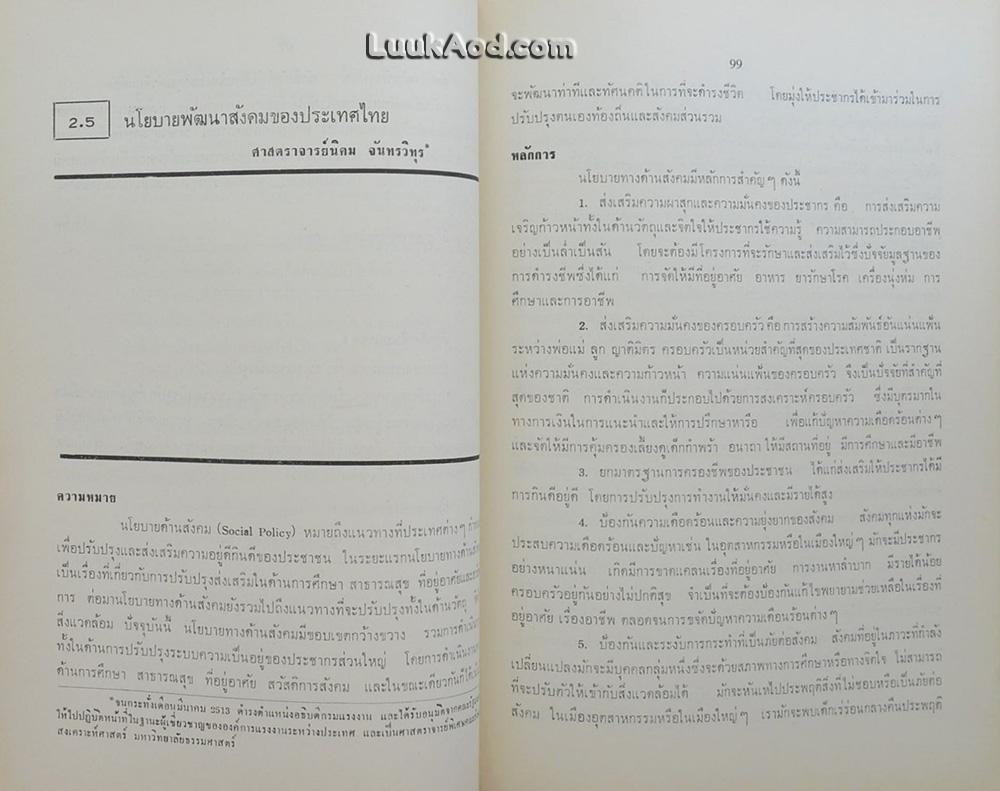 LuukAod.com
2.5 นโยบายพัฒนาสังคมของประเทศไทย
ศาสตราจารย์นิคม จันทรวิทุร*
ความหมาย
นโยบายด้านสังคม (Social Policy) หมายถึงแนวทางที่ประเทศต่างๆ
เพื่อปรับปรุงและส่งเสริมความอยู่ดีกินดีของประชาชน ในระยะแรกนโยบายทางด้าน
เป็นเรื่องที่เกี่ยวกับการปรับปรุงส่งเสริมในด้านการศึกษา สาธารณสุข ที่อยู่อาศัย
การ ต่อมานโยบายทางด้านสังคมยังรวมไปถึงแนวทางที่จะปรับปรุงทั้งในด้านวัตถุ
สิ่งแวดล้อม ปัจจุบันนี้ นโยบายทางด้านสังคมมีขอบเขตกว้างขวาง รวมการดำเนิน
ทั้งในด้านการปรับปรุงระบบความเป็นอยู่ของประชากรส่วนใหญ่ โดยการดำเนินงาน
ด้านการศึกษา สาธารณสุข ที่อยู่อาศัย สวัสดิการสังคม และในขณะเดียวกันก็ได้
*จนกระทั่งเดือนมีนาคม 2513 ดำรงตำแหน่งอธิบดีกรมแรงงาน และได้รับอนุมัติจากคณะ
ให้ไปปฏิบัติหน้าที่ในฐานะผู้เชี่ยวชาญขององค์การแรงงานระหว่างประเทศ และเป็นศาสตราจารย์พิเศษ
สงเคราะห์ศาสตร์ มหาวิทยาลัยธรรมศาสตร์
99
จะพัฒนาท่าทีและทัศนคติในการที่จะดำรงชีวิต โดยมุ่งให้ประชากรได้เข้ามาร่วมในการ
ปรับปรุงตนเองท้องถิ่นและสังคมส่วนรวม
หลักการ
นโยบายทางด้านสังคมมีหลักการสำคัญๆ ดังนี้
1. ส่งเสริมความผาสุกและความมั่นคงของประชากร คือ การส่งเสริมความ
เจริญก้าวหน้าทั้งในด้านวัตถุและจิตใจให้ประชากรใช้ความรู้ ความสามารถประกอบอาชีพ
อย่างเป็นล่ำเป็นสัน โดยจะต้องมีโครงการที่จะรักษาและส่งเสริมไว้ซึ่งปัจจัยมูลฐานของ
การดำรงชีพซึ่งได้แก่ การจัดให้มีที่อยู่อาศัย อาหาร ยารักษาโรค เครื่องนุ่งห่ม การ
ศึกษาและการอาชีพ
2. ส่งเสริมความมั่นคงของครอบครัว คือ การสร้างความสัมพันธ์อันแน่นแฟ้น
ระหว่างพ่อแม่ ลูก ญาติมิตร ครอบครัวเป็นหน่วยสำคัญที่สุดของประเทศชาติ เป็นรากฐาน
แห่งความมั่นคงและความก้าวหน้า ความแน่นแฟ้นของครอบครัว จึงเป็นปัจจัยที่สำคัญที่
สุดของชาติ การดำเนินงานก็ประกอบไปด้วยการสงเคราะห์ครอบครัว ซึ่งมีบุตรมากใน
ทางการเงินในการแนะนำและให้การปรึกษาหารือ เพื่อแก้ปัญหาความเดือดร้อนต่างๆ
และจัดให้มีการคุ้มครองเลี้ยงดูเด็กกำพร้า อนาถา ให้มีสถานที่อยู่ มีการศึกษาและมีอาชีพ
3. ยกมาตรฐานการครองชีพของประชาชน ได้แก่ส่งเสริมให้ประชากรได้มี
การกินดีอยู่ดี โดยการปรับปรุงการทำงานให้มั่นคงและมีรายได้สูง
4. ป้องกันความเดือดร้อนและความยุ่งยากของสังคม สังคมทุกแห่งมักจะ
ประสบความเดือดร้อนและปัญหาเช่น ในอุตสาหกรรมหรือในเมืองใหญ่ๆ มักจะมีประชากร
อย่างหนาแน่น เกิดมีการขาดแคลนเรื่องที่อยู่อาศัย การงานหาลำบาก มีรายได้น้อย
ครอบครัวอยู่กันอย่างไม่ปกติสุข จำเป็นที่จะต้องป้องกันแก้ไขพยายามช่วยเหลือในเรื่องที่
อยู่อาศัย เรื่องอาชีพ ตลอดจนการขจัดปัญหาความเดือนร้อนต่างๆ
5. ป้องกันและระงับการกระทำที่เป็นภัยต่อสังคม สังคมที่อยู่ในภาวะที่กำลัง
เปลี่ยนแปลงมักจะมีบุคคลกลุ่มหนึ่งซึ่งจะด้วยสภาพทางการศึกษาหรือทางจิตใจ ไม่สามารถ
ที่จะปรับตัวให้เข้ากับสิ่งแวดล้อมได้ มักจะหันเหไปประพฤติสิ่งที่ไม่ชอบหรือเป็นภัยต่อ
สังคม ในเมืองอุตสาหกรรมหรือในเมืองใหญ่ๆ เรามักจะพบเด็กเร่ร่อนกลางคืนประพฤติ